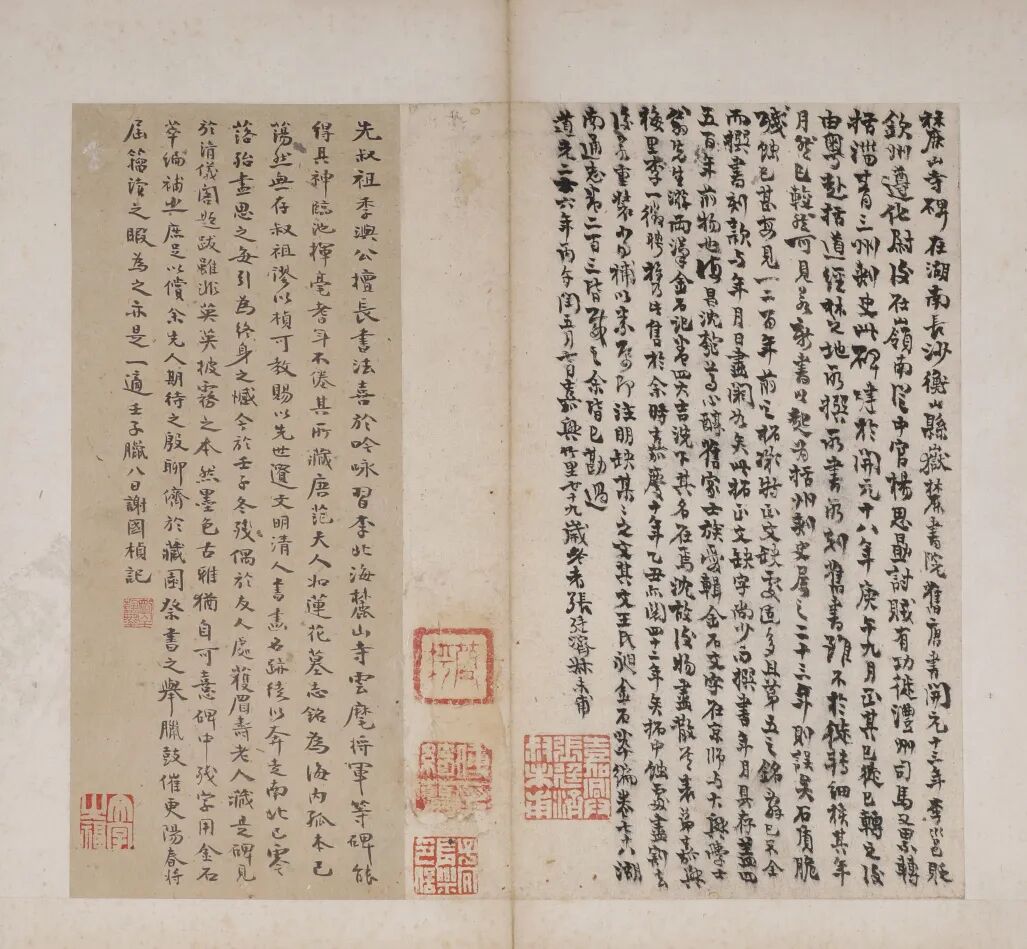 麓山寺碑在湖南長沙衡山縣嶽麓書院舊唐書開元十三年李邕貶
欽州遵化尉後在嶺南從中官楊思勗討賊有功徙澧州司馬又累轉
括淄青三州刺史此碑時於開元十八年庚午九月正其已徙已轉之後
由粵赴括道經林之地所撰所書所刻舊書雖不於徙轉細核其年
月然已輕然可見若新書以起為括州刺史屬之二十三年則誤矣石質脆
磽蝕已甚每見一二百年前之拓 正文缺處迨多且第五之銘辭已不全
而撰書刻款与年月日盡闕如矣此拓正文缺字尚少而撰書年月具存蓋四
五百年前物也 昌沈 舊家士族 輯金石文字在京師与大興學士
翁先生游兩漢金石記第四 其名在焉沈故後物盡散 嘉興
梅里李 售於余時嘉慶十年乙丑 四十二年矣拓中蝕處盡割去
後 重裝 補以朱 即注明缺某某之文其文王氏昶金石萃編卷七十八湖
南通志第二百三皆載之余皆已勘過
道光二十六年丙午閏五月 嘉興竹里七十九歲 張廷濟叔未甫
先叔祖季澳公擅長書法喜於吟咏習李北海麓山寺雲麾將軍等碑能
得其神臨池揮毫耆年不倦其所藏唐范夫人如蓮花墓志銘為海内孤本已
蕩然無存叔祖謬以楨可教賜以先世遺文明清人書畫名跡徒以奔走南北已零
落殆盡思之每引為終身之憾今於壬子冬殘偶於友人處獲眉壽老人藏是碑見
於清儀閣題跋雖非英英披霧之本然墨色古雅猶自可憙碑中殘字用金石
萃編補出庶足以償余先人期待之殷聊儕於藏園祭書之舉臘鼓催更陽春將
屆籀誦之暇為之亦是一適壬子臘八日謝國楨記